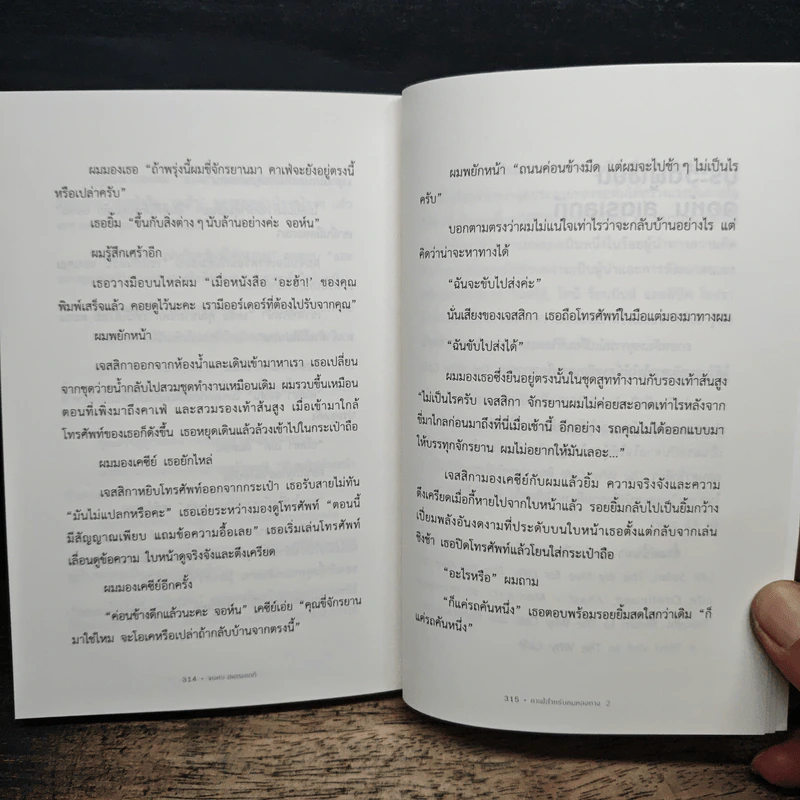 ผมมองเธอ “ถ้าพรุ่งนี้ผมขี่จักรยานมา คาเฟ่จะยังอยู่ตรงนี้
หรือเปล่าครับ”
เธอยิ้ม “ขึ้นกับสิ่งต่าง ๆ นับล้านอย่างค่ะ จอห์น”
ผมรู้สึกเศร้าอีก
เธอวางมือบนไหล่ผม “เมื่อหนังสือ ‘อะฮ้า!’ ของคุณ
พิมพ์เสร็จแล้ว คอยดูไว้นะคะ เรามีออร์เดอร์ที่ต้องไปรับจากคุณ”
ผมพยักหน้า
เจสสิกาออกจากห้องน้ำและเดินเข้ามาหาเรา เธอเปลี่ยน
จากชุดว่ายน้ำกลับไปสวมชุดทำงานเหมือนเดิม ผมรวบขึ้นเหมือน
ตอนที่เพิ่งมาถึงคาเฟ่ และสวมรองเท้าส้นสูง เมื่อเข้ามาใกล้
โทรศัพท์ของเธอก็ดังขึ้น เธอหยุดเดินแล้วล้วงเข้าไปในกระเป๋าถือ
ผมมองเคซีย์ เธอยักไหล่
เจสสิกาหยิบโทรศัพท์ออกจากกระเป๋า เธอรับสายไม่ทัน
“มันไม่แปลกหรือคะ” เธอเอ่ยระหว่างมองดูโทรศัพท์ “ตอนนี้
มีสัญญาณเพียบ แถมข้อความอื้อเลย” เธอเริ่มเล่นโทรศัพท์
เลื่อนดูข้อความ ใบหน้าดูจริงจังและตึงเครียด
ผมมองเคซีย์อีกครั้ง
“ค่อนข้างดึกแล้วนะคะ จอห์น” เคซีย์เอ่ย “คุณขี่จักรยาน
มาใช่ไหม จะโอเคหรือเปล่าถ้ากลับบ้านจากตรงนี้”
314 •
ผมพยักหน้า “ถนนค่อนข้างมืด แต่ผมจะไปช้า ๆ ไม่เป็นไร
ครับ”
บอกตามตรงว่าผมไม่แน่ใจเท่าไรว่าจะกลับบ้านอย่างไร แต่
คิดว่าน่าจะหาทางได้
“ฉันจะขับไปส่งค่ะ”
นั่นเสียงของเจสสิกา เธอถือโทรศัพท์ในมือแต่มองมาทางผม
“ฉันขับไปส่งได้”
ผมมองเธอซึ่งยืนอยู่ตรงนั้นในชุดสูททำงานกับรองเท้าส้นสูง
“ไม่เป็นไรครับ เจสสิกา จักรยานผมไม่ค่อยสะอาดเท่าไรหลังจาก
ขี่มาไกลก่อนมาถึงที่นี่เมื่อเช้านี้ อีกอย่าง รถคุณไม่ได้ออกแบบมา
ให้บรรทุกจักรยาน ผมไม่อยากให้มันเลอะ...”
เจสสิกามองเคซีย์กับผมแล้วยิ้ม ความจริงจังและความ
ตึงเครียดเมื่อกี้หายไปจากใบหน้าแล้ว รอยยิ้มกลับไปเป็นยิ้มกว้าง
เปี่ยมพลังอันงดงามที่ประดับบนใบหน้าเธอตั้งแต่กลับจากเล่น
ชิงช้า เธอปิดโทรศัพท์แล้วโยนใส่กระเป๋าถือ
“อะไรหรือ” ผมถาม
“ก็แค่รถคันหนึ่ง” เธอตอบพร้อมรอยยิ้มสดใสกว่าเดิม “ก็
แค่รถคันหนึ่ง”
315 • คาเฟ่สำหรับคนหลงทาง 2